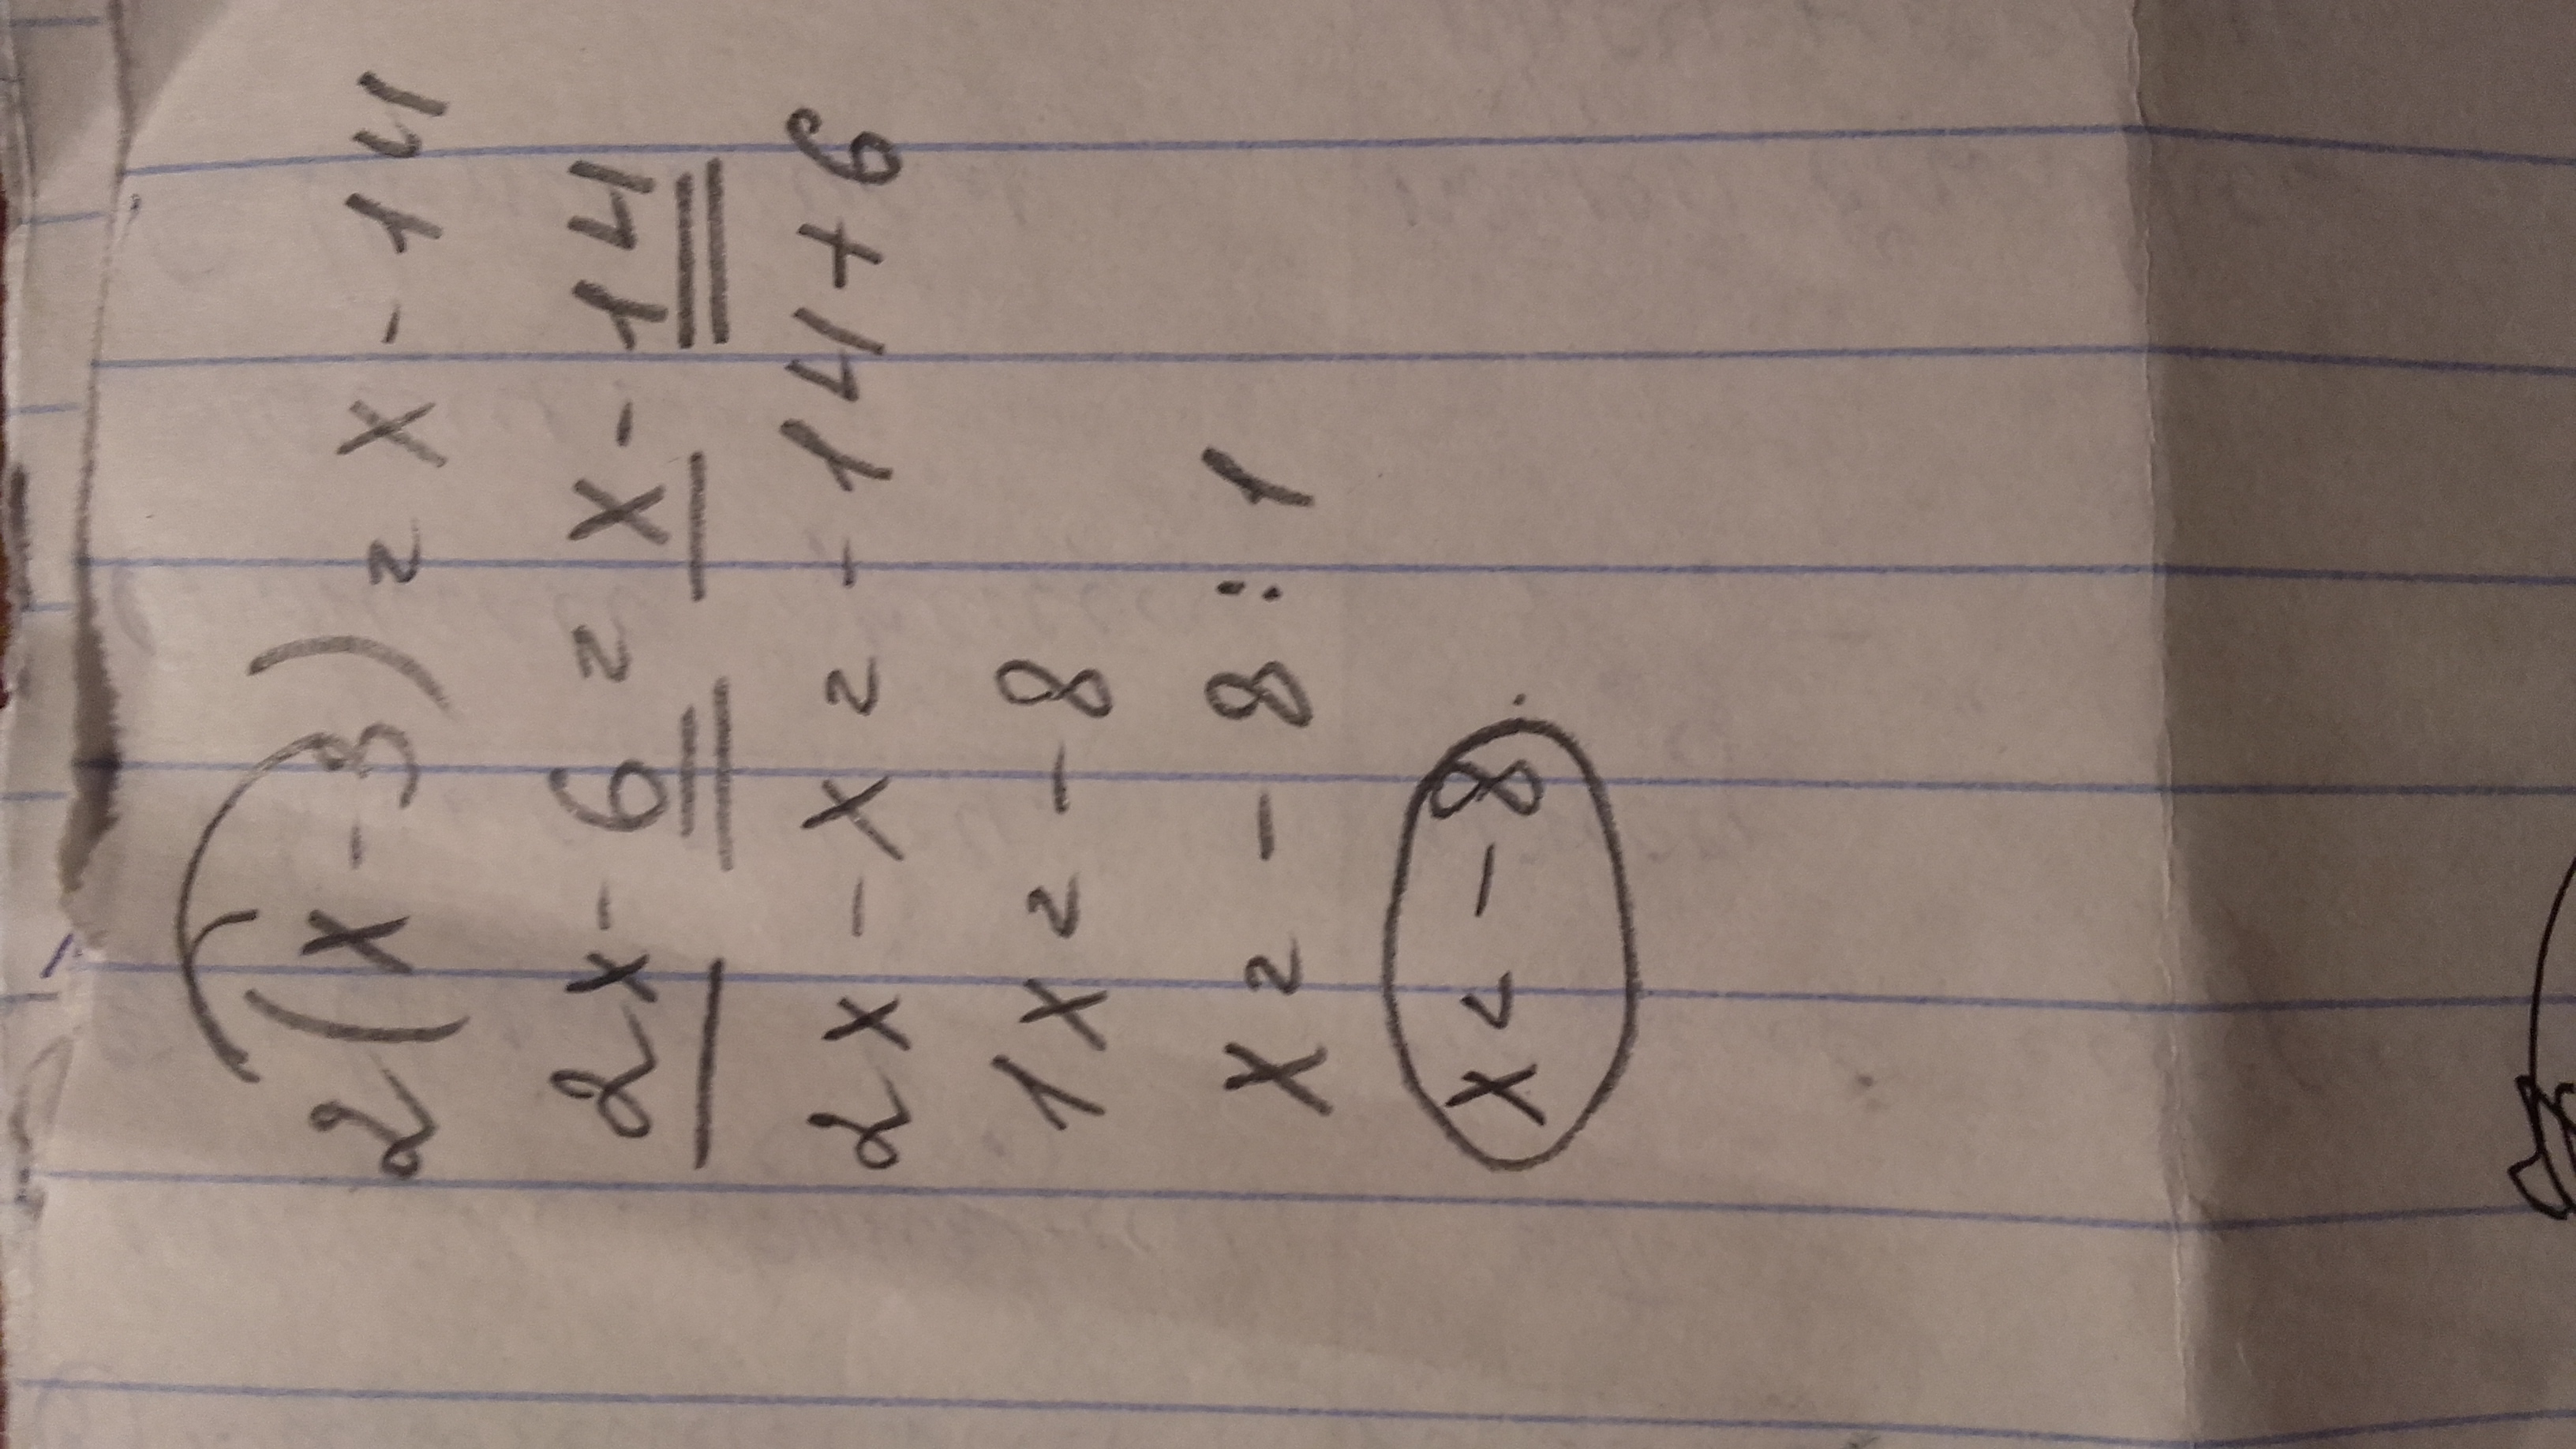 2(x-3) = x-14
2x-6 = x-14
2x-x = -14+6
1x = -8
x = -8:1
x = -8